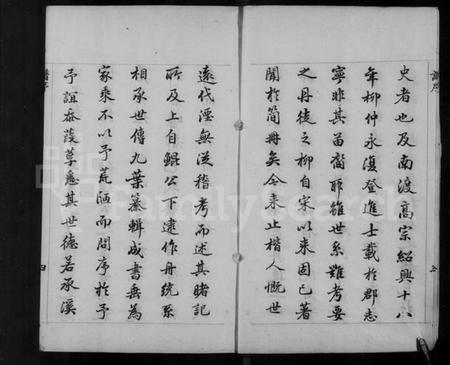 史者也及南渡高宗紹興十八
年柳仲永復登進士載於郡志
寧非其苗裔耶雖世系難考要
之丹徒之柳自宋以來固已著
聞於簡冊矣令來止楷人慨世
遠代湮無從稽考而述其睹記
所及上自鯤公下逮作舟統系
相承世傳九葉纂輯成書垂為
家乘不以予荒陋而問序於予
予誼忝葭莩悉其世德若承溪
譜序
FamilySearch